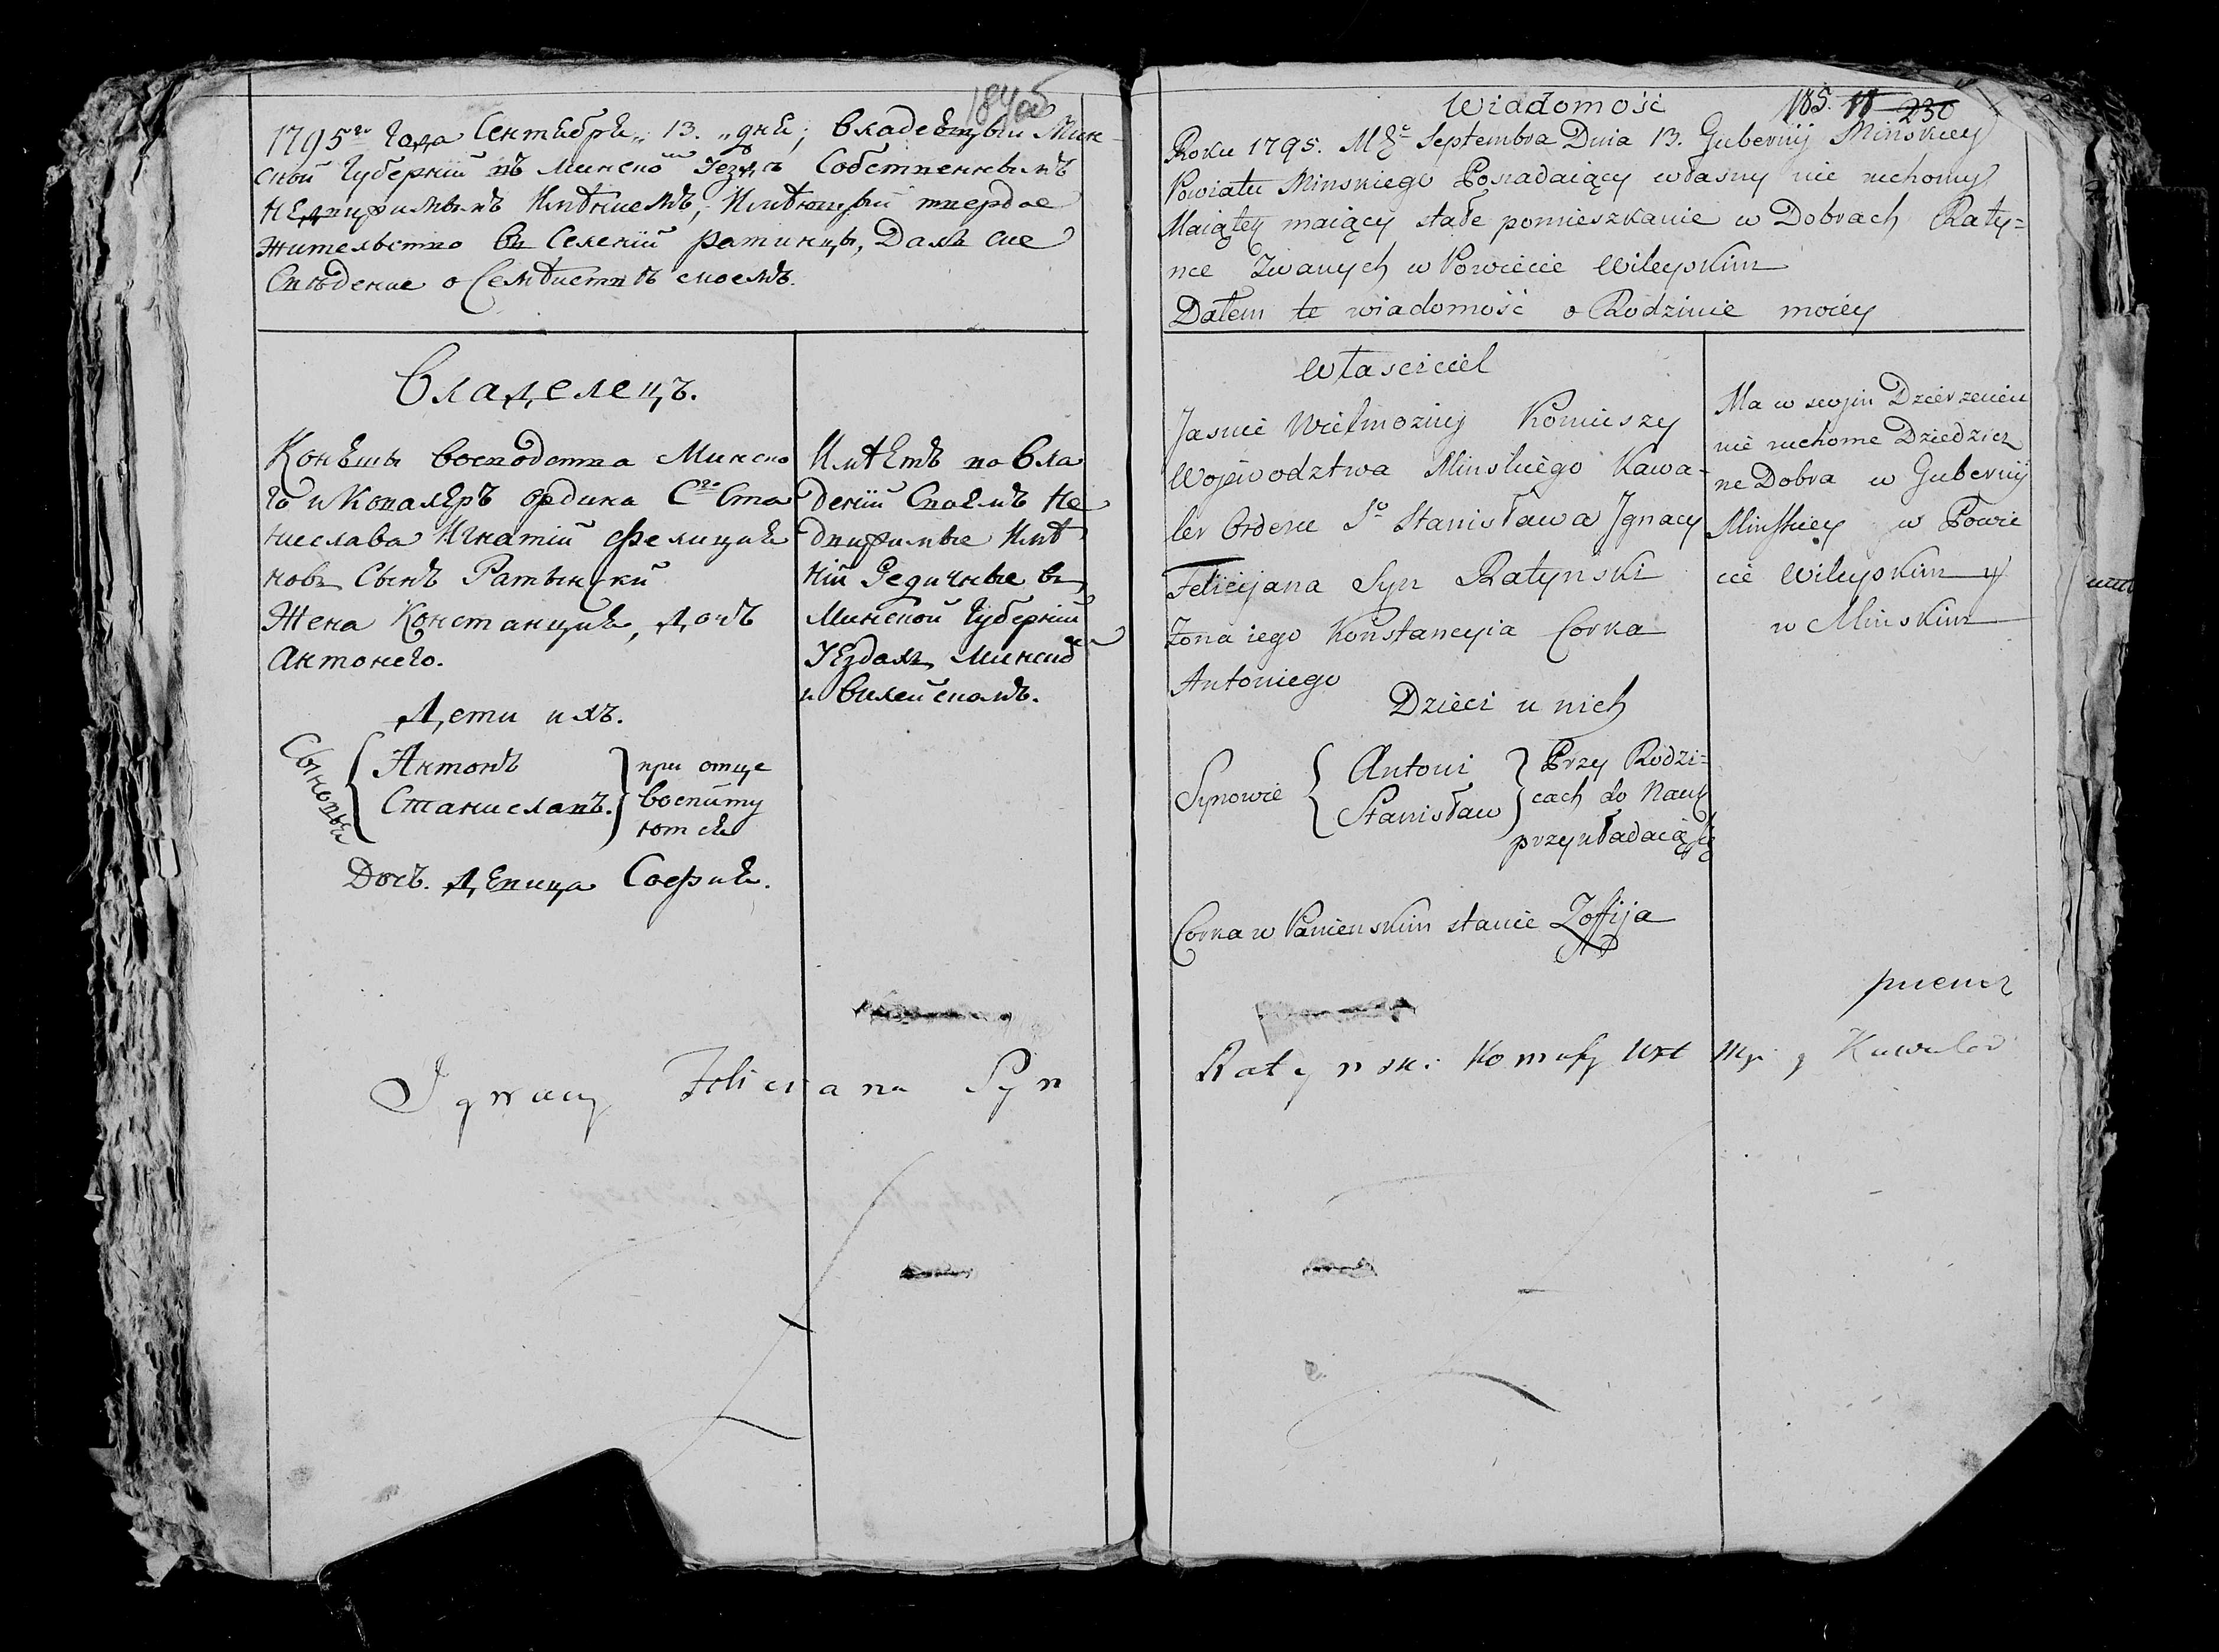 184об
1795го года Сентября „ 13. „ дня; Владеющый Мин-
ской Губернїи въ Минском Уездѣ Собственнымъ
Недвижимымъ Имѣниемъ, Имѣющый твердое
Жительство въ Селенїи Ратинцы, Далъ сие
Сведение о Семѣистве своемъ.
Владелецъ.
Конюшы Воеводства Минско
го и Ковалеръ ордина Сго Ста
ниславa Игнатїй Фелициа
новъ Сынъ Ратынский
Жена Констанция, дочъ
Антонего.
Дети ихъ.
Сыновьи
Антонъ
Станиславъ.
при отце
воспиту
ются
Дочъ. Девица София.
Имѣетъ во Вла
денїи Своемъ Не
движимые Имѣ
нїи Дедичные въ
Минской Губернїи
Уездахъ Минском
и Вилейскомъ.
Wiadomość
185. 18 230
Roku 1795. Mca Septembra Dnia 13. Gubernij Minskiey
Powiatu Minskiego Posiadaiący własny nie ruchomy
Maiątek maiący stałe pomieszkanie w Dobrach Raty=
nce Zwanych w Powiecie Wileyskim
Dałem te wiadomość o Rodzinie moiey
Własciciel
Jasnie Wielmozny Koniuszy
Wojewodztwa Minskiego Kawa-
ler Orderu So Stanisława Jgnacy
Felicijana Syn Ratynski
Zona iego Konstancyia Corka
Antoniego
Dzieci u nich
Synowie
Antoni
Stanisław
Przy Rodzi=
cach do Nauk
przykładaią się
Corka w Panienskim stanie Zoffija
Ma w swojm Dzierzeniu
nie ruchome Dziedzicz
ne Dobra w Gubernij
Minskiey w Powie
cie Wileyskim y
w Minskim
Jgnacy Felicijana Syn
Ratynski Wot Mji y Kawaler